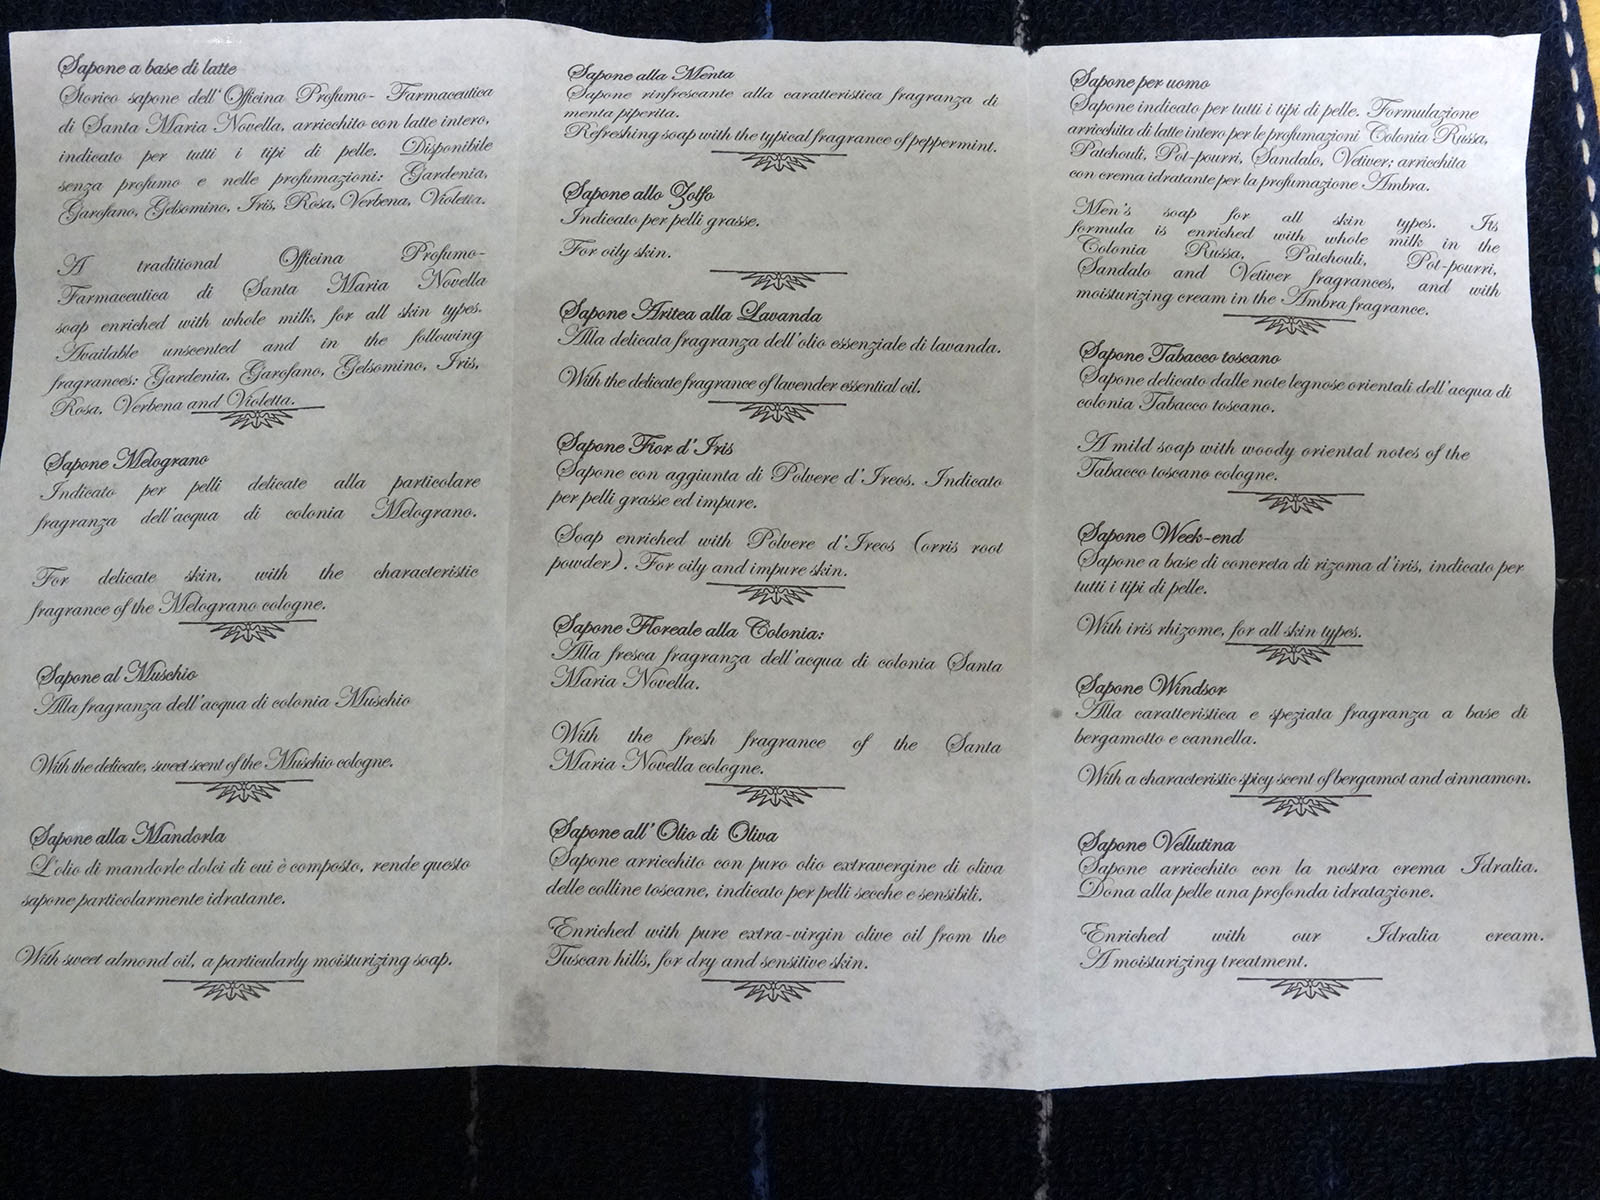 Sapone a base di latte
Storico sapone dell'Officina Profumo- Farmaceutica
di Santa Maria Novella, arricchito con latte intero,
indicato per tutti i tipi di pelle. Disponibile
senza profumo e nelle profumazioni: Gardenia,
Garofano, Gelsomino, Iris, Rosa, Verbena, Violetta.
A traditional Officina Profumo-
Farmaceutica di Santa Maria Novella
soap enriched with whole milk, for all skin types.
Available unscented and in the following
fragrances: Gardenia, Garofano, Gelsomino, Iris,
Rosa, Verbena and Violetta.
Sapone Melograno
Indicato per pelli delicate alla particolare
fragranza dell'acqua di colonia Melograno.
For delicate skin, with the characteristic
fragrance of the Melograno cologne.
Sapone al Muschio
Alla fragranza dell'acqua di colonia Muschio
With the delicate, sweet scent of the Muschio cologne.
Sapone alla Mandorla
L'olio di mandorle dolci di cui è composto, rende questo
sapone particolarmente idratante.
With sweet almond oil, a particularly moisturizing soap.
Sapone alla Menta
Sapone rinfrescante alla caratteristica fragranza di
menta piperita.
Refreshing soap with the typical fragrance of peppermint.
Sapone allo Zolfo
Indicato per pelli grasse.
For oily skin.
Sapone Aritea alla Lavanda
Alla delicata fragranza dell'olio essenziale di lavanda.
With the delicate fragrance of lavender essential oil.
Sapone Fior d'Iris
Sapone con aggiunta di Polvere d'Ireos. Indicato
per pelli grasse ed impure.
Soap enriched with Polvere d'Ireos (orris root
powder). For oily and impure skin.
Sapone Floreale alla Colonia:
Alla fresca fragranza dell'acqua di colonia Santa
Maria Novella.
With the fresh fragrance of the Santa
Maria Novella cologne.
Sapone all'Olio di Oliva
Sapone arricchito con puro olio extravergine di oliva
delle colline toscane, indicato per pelli secche e sensibili.
Enriched with pure extra-virgin olive oil from the
Tuscan hills, for dry and sensitive skin.
Sapone per uomo
Sapone indicato per tutti i tipi di pelle. Formulazione
arricchita di latte intero per le profumazioni Colonia Russa,
Patchouli, Pot-pourri, Sandalo, Vetiver; arricchita
con crema idratante per la profumazione Ambra.
Men's soap for all skin types. Its
formula is enriched with whole milk in the
Colonia Russa, Patchouli, Pot-pourri,
Sandalo and Vetiver fragrances, and with
moisturizing cream in the Ambra fragrance.
Sapone Tabacco toscano
Sapone delicato dalle note legnose orientali dell'acqua di
colonia Tabacco toscano.
A mild soap with woody oriental notes of the
Tabacco toscano cologne.
Sapone Week-end
Sapone a base di concreta di rizoma d'iris, indicato per
tutti i tipi di pelle.
With iris rhizome, for all skin types.
Sapone Windsor
Alla caratteristica e speziata fragranza a base di
bergamotto e cannella.
With a characteristic spicy scent of bergamot and cinnamon.
Sapone Vellutina
Sapone arricchito con la nostra crema Idralia.
Dona alla pelle una profonda idratazione.
Enriched with our Idralia cream.
A moisturizing treatment.